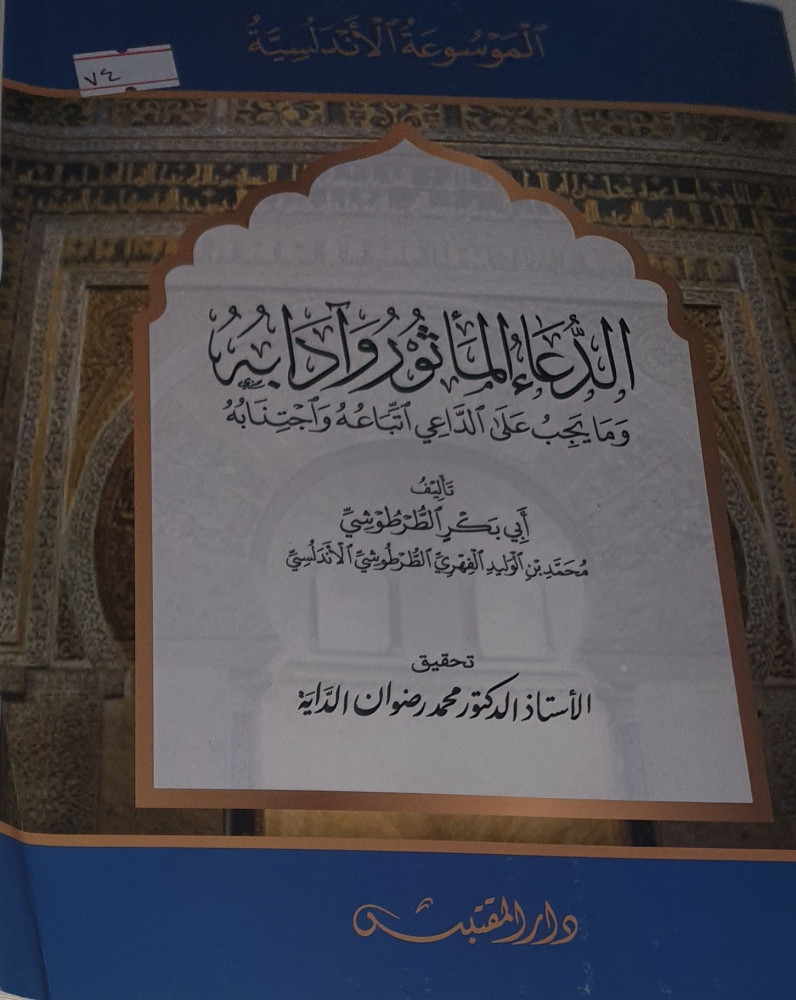 الْمَوْسُوعَةُ الْأَنْدَلُسِيَّةُ
٧٤
الدُّعَاءُ الْمَأْثُورُ وَآدَابُهُ
وَمَا يَجِبُ عَلَى الدَّاعِي اتِّبَاعُهُ وَاجْتِنَابُهُ
تَأْلِيْفُ
أَبِي بَكْرٍ الطُّرْطُوْشِيِّ
مُحَمَّدِ بْنِ الْوَلِيدِ الْفِهْرِيِّ الطُّرْطُوشِيِّ الْأَنْدَلُسِيِّ
تحقيق
الأستاذ الدكتور محمد رضوان الدَّاية
دار المقتبس